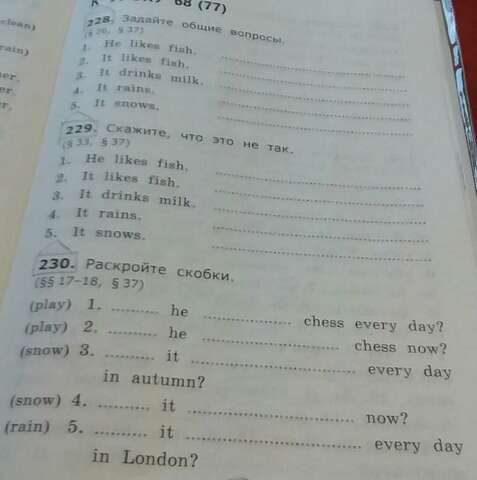 К 68 (77)
228. Задайте общие вопросы.
(§ 20, § 37)
1. He likes fish.
2. It likes fish.
3. It drinks milk.
4. It rains.
5. It snows.
229. Скажите, что это не так.
(§ 33, § 37)
1. He likes fish.
2. It likes fish.
3. It drinks milk.
4. It rains.
5. It snows.
230. Раскройте скобки.
(§§ 17–18, § 37)
(play) 1. .......... he .................. chess every day?
(play) 2. .......... he .................. chess now?
(snow) 3. .......... it .................. every day
in autumn?
(snow) 4. .......... it .................. now?
(rain) 5. .......... it .................. every day
in London?
clean)
rain)
er.
er.